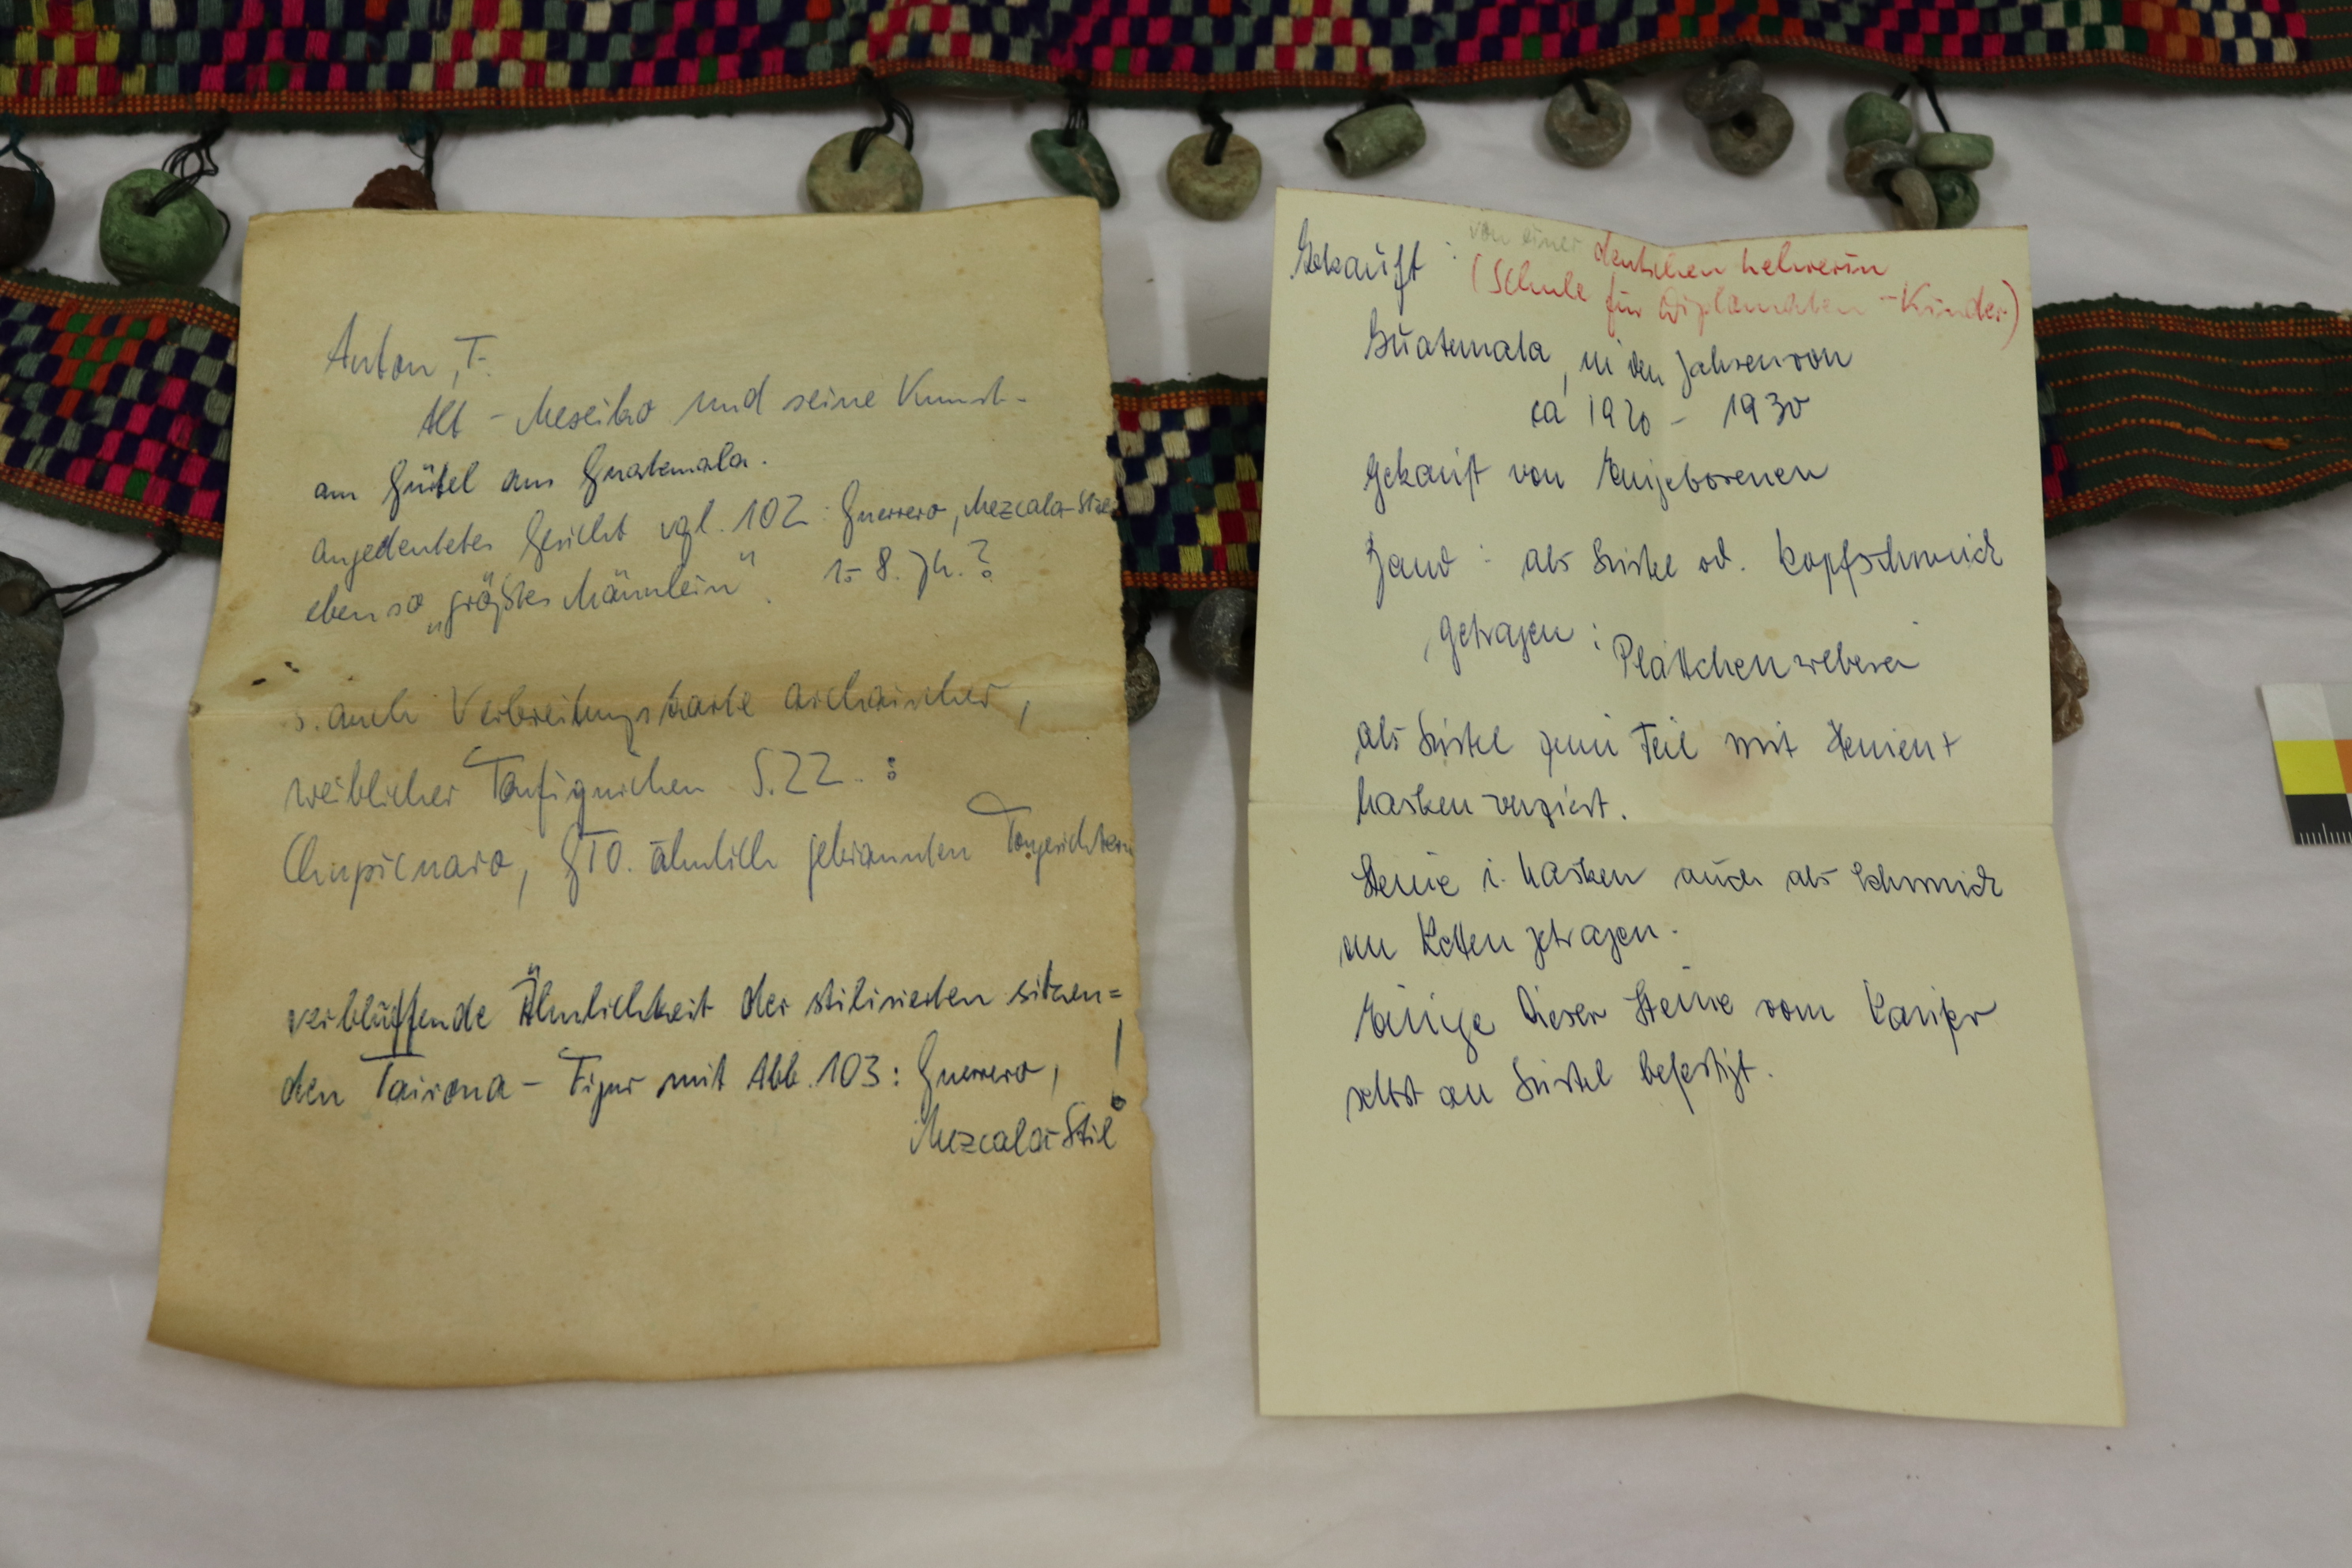 Anton, F.
Alt-Mexiko und seine Kunst-
am Gürtel aus Guatemala.
angedeutetes Gesicht vgl. 102: Guerrero, Mezcala-Stil
ebenso „größtes Männlein". 1-8. Jh.?
s. auch Verbreitungskarte archaischer,
weiblicher Tonfigürchen S.22.:
Chupicuaro, GTO. ähnlich gebrannten Tongesichtern
verblüffende Ähnlichkeit der stilisierten sitzen=
den Tairona-Figur mit Abb. 103: Guerrero, !
Mezcala-Stil
Gekauft: von einer deutschen Lehrerin
(Schule für Diplomaten-Kinder)
Guatemala, in den Jahren von
ca 1920 - 1930
Gekauft von Eingeborenen
Band: als Gürtel od. Kopfschmuck
getragen: Plättchenweberei
als Gürtel zum Teil mit Steinen +
Masken verziert.
Steine i. Masken auch als Schmuck
an Ketten getragen.
Einige dieser Steine vom Käufer
selbst an Gürtel befestigt.